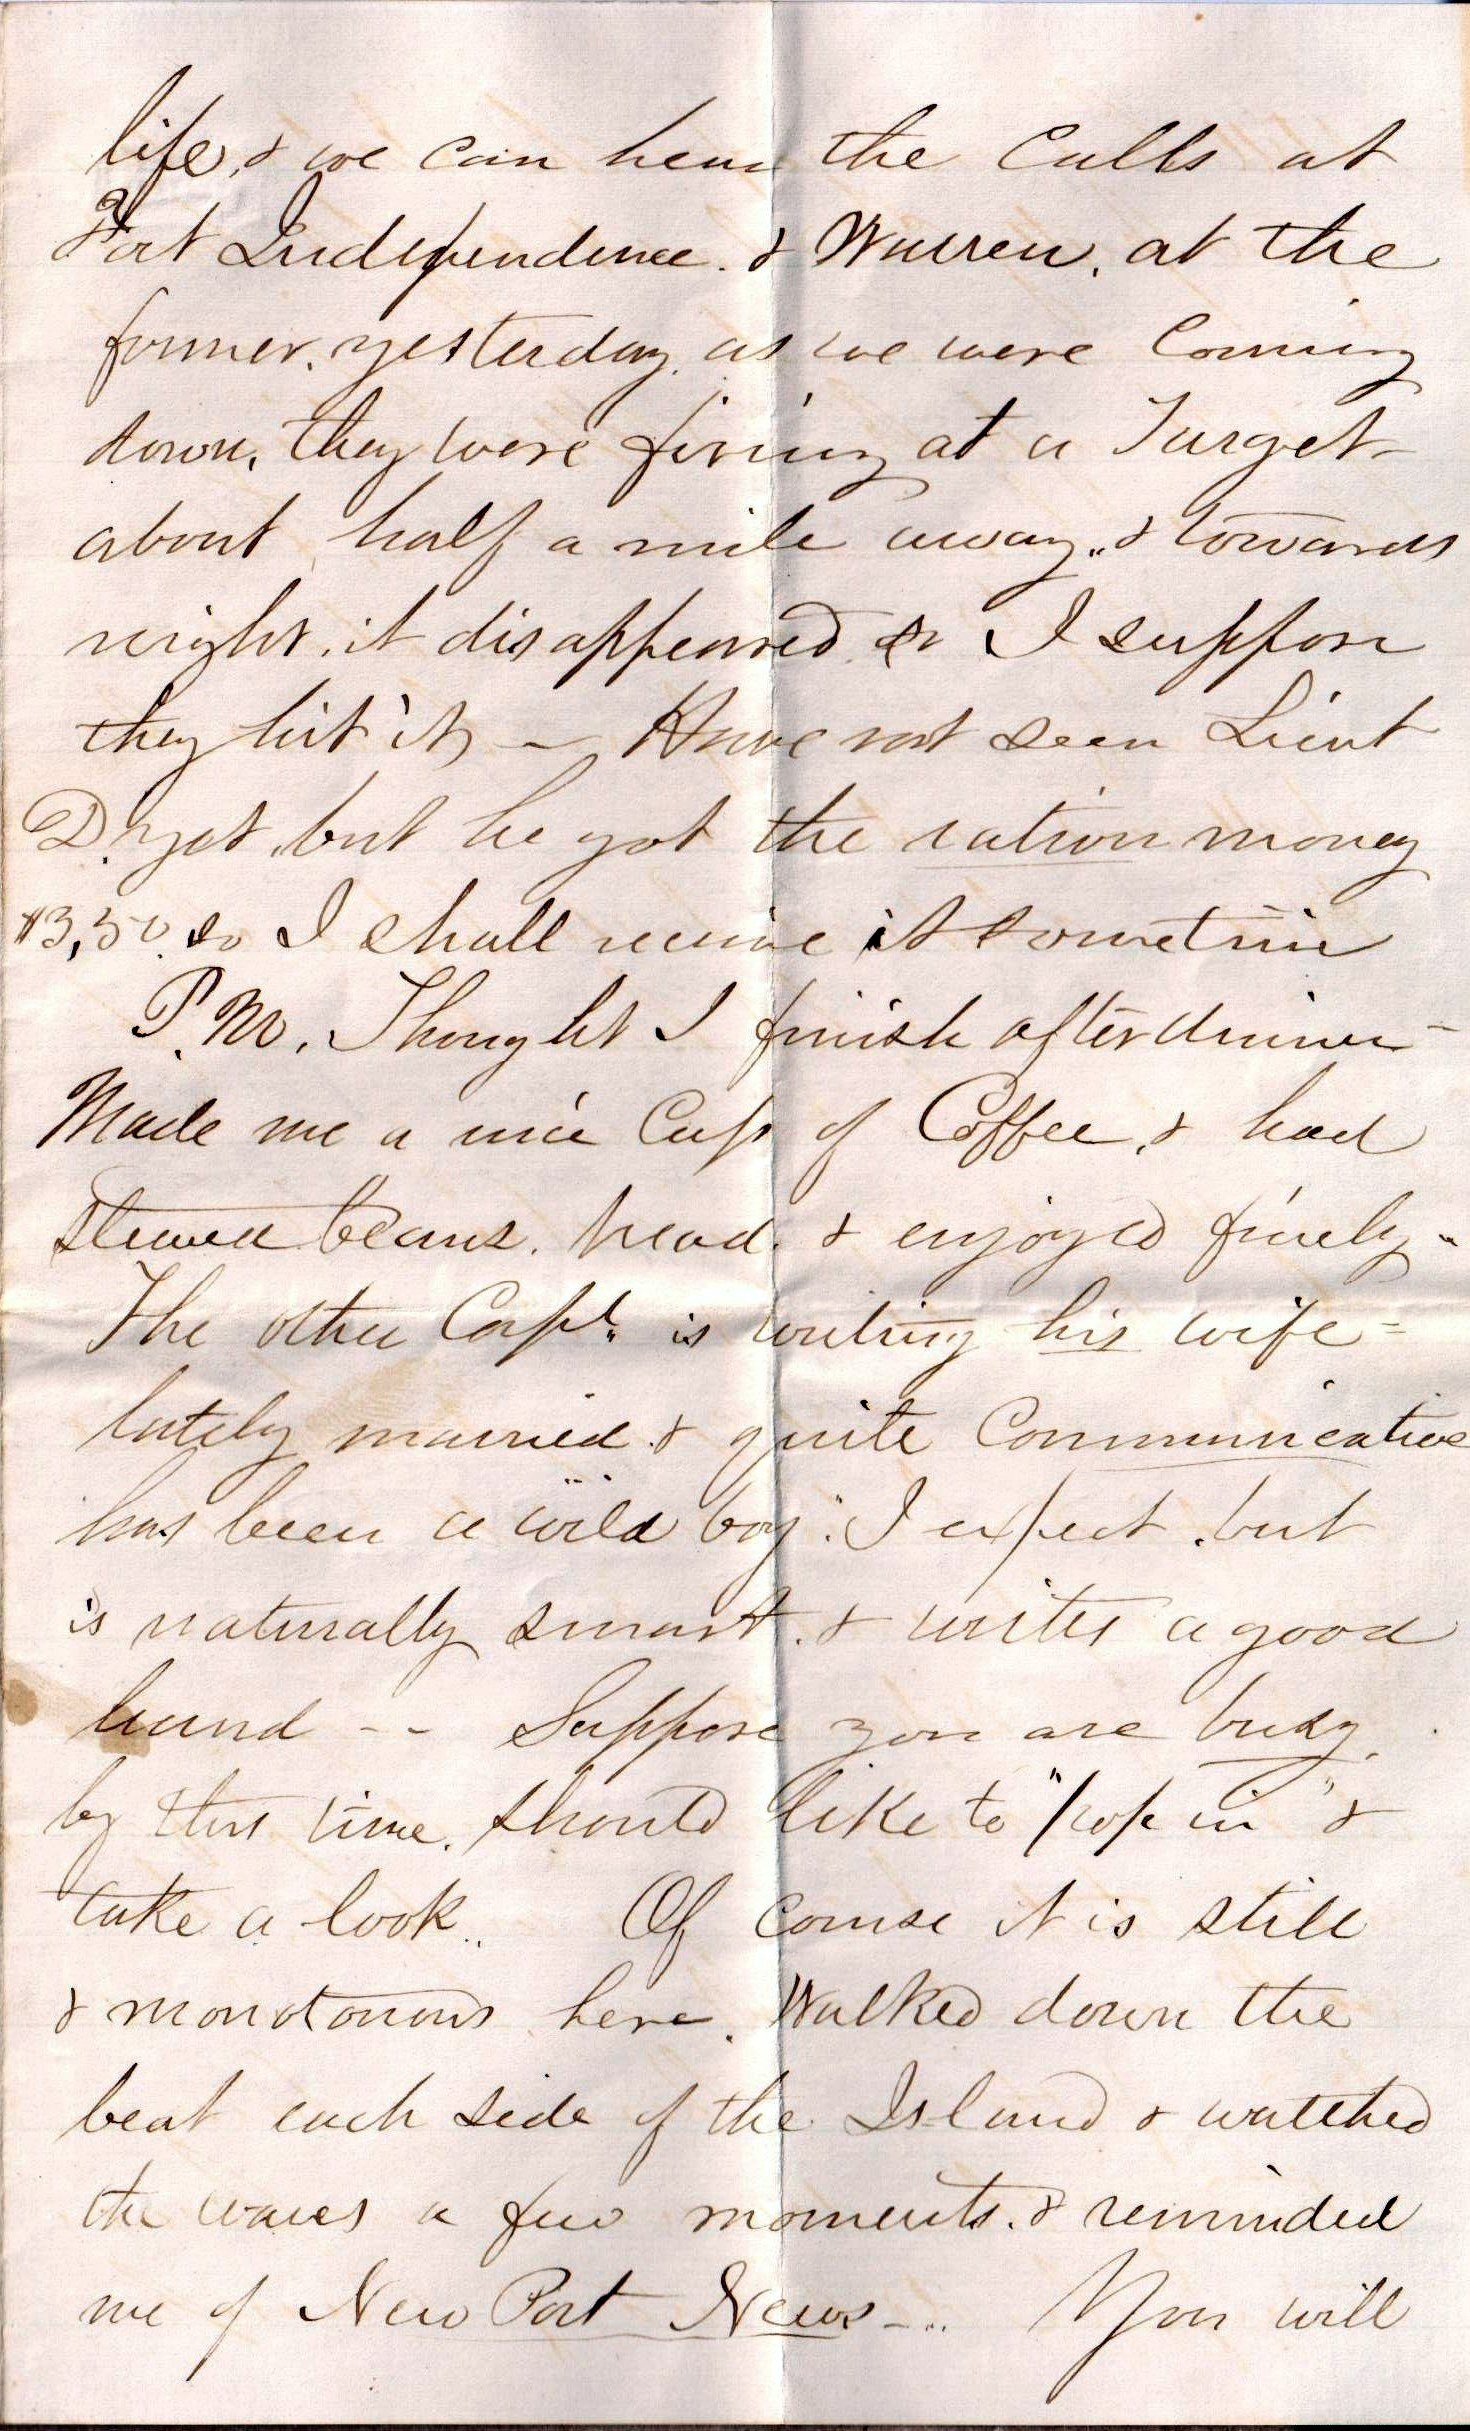 life, & we can hear the Calls at
Fort Independence. & Warren. at the
former. yesterday. as we were Coming
down, they were firing at a Target -
about half a mile away,, & towards
night, it disappeared. so I suppose
they hit it, - Have not seen Lieut
D. yet, but he got the ration money
$3,50. so I shall receive it sometime
P.M. Thought I finish after dinner -
Made me a nice Cup of Coffee, & had
stewed beans. bread. & enjoyed finely.
The other Corpl. is writing his wife =
lately married. & quite Communicative
has been a wild boy. I expect, but
is naturally smart. & writes a good
hand - - Suppose you are busy.
by this time. should like to "pop in" &
take a look.. Of course it is still
& monotonous here. Walked down the
beat each side of the Island & watched
the waves a few moments. & reminded
me of New Port News - .. You will